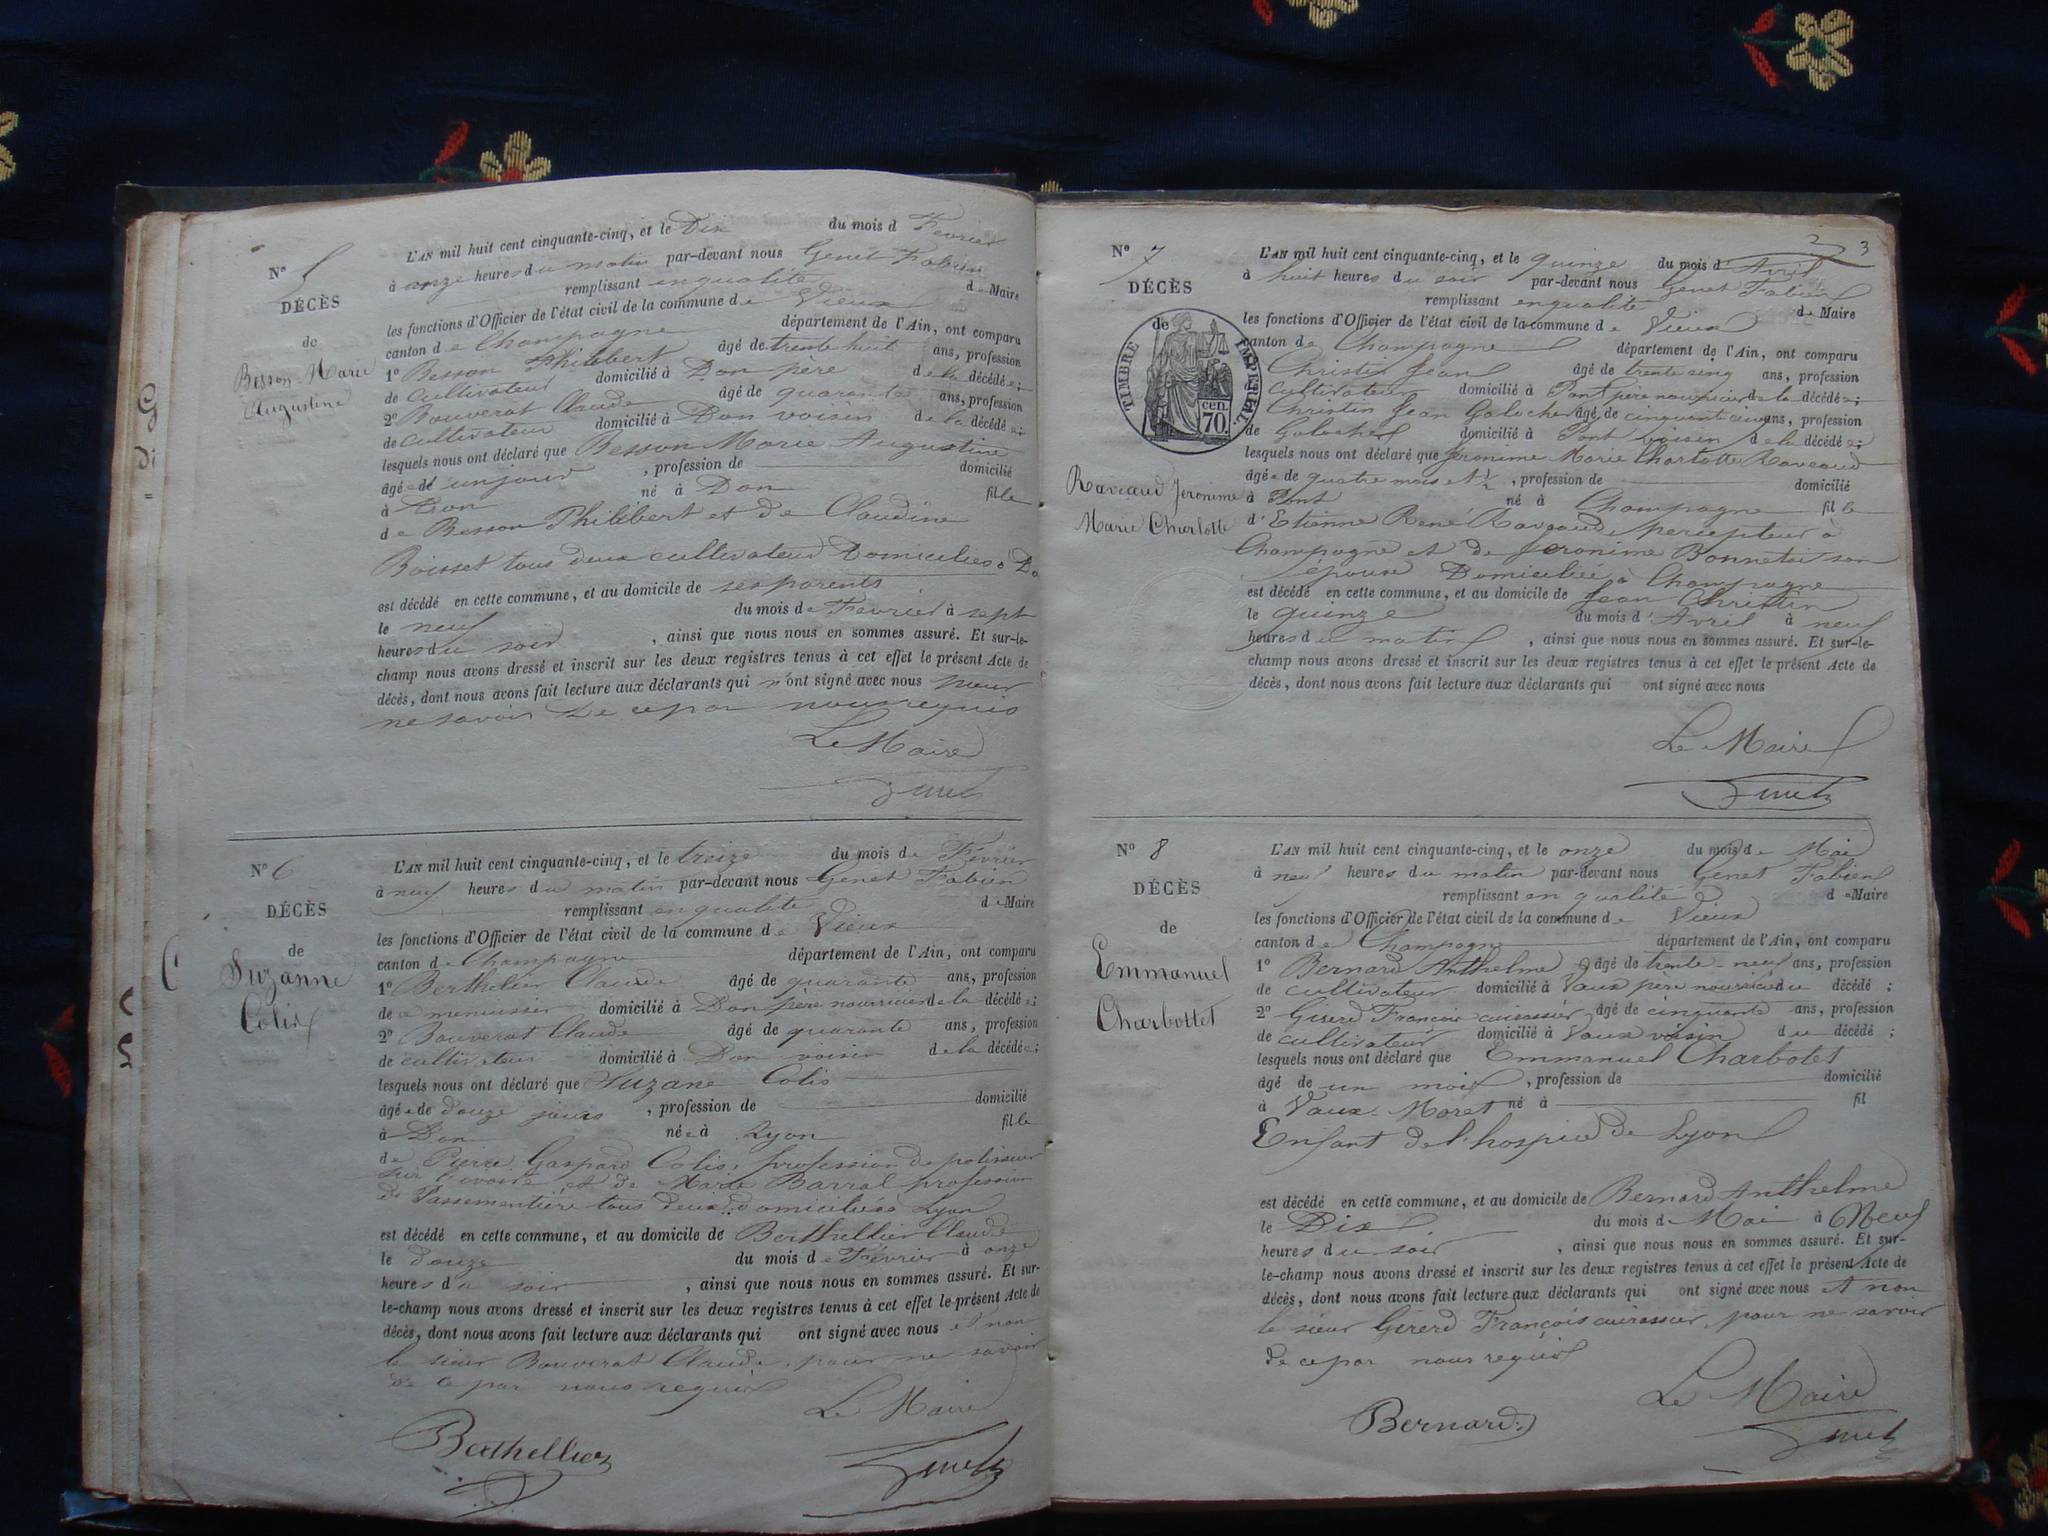 N° 5
DÉCÈS
de
Besson Marie
Augustine
L'AN mil huit cent cinquante-cinq, et le Dix du mois d Fevrier
à onze heures du matin par-devant nous Genet Fabien
remplissant en qualité de Maire
les fonctions d'Officier de l'état civil de la commune de Vieux
canton de Champagne département de l'Ain, ont comparu
1° Besson Philibert âgé de trente huit ans, profession
de cultivateur domicilié à Don père de la décédée;
2° Bouverat Claude âgé de quarante ans, profession
de cultivateur domicilié à Don voisin de la décédée;
lesquels nous ont déclaré que Besson Marie Augustine
âgée de un jour, profession de domicilié
à Don né à Don fille
de Besson Philibert et de Claudine
Boisset tous deux cultivateurs Domiciliés à Do
est décédé en cette commune, et au domicile de ses parents
le neuf du mois de Fevrier à sept
heures du soir, ainsi que nous nous en sommes assuré. Et sur-le-
champ nous avons dressé et inscrit sur les deux registres tenus à cet effet le présent Acte de
décès, dont nous avons fait lecture aux déclarants qui n'ont signé avec nous pour
ne savoir de ce par nous requis
Le Maire
Genet
N° 6
DÉCÈS
de
Suzanne
Colis
L'AN mil huit cent cinquante-cinq, et le treize du mois de Février
à neuf heures du matin par-devant nous Genet Fabien
remplissant en qualité de Maire
les fonctions d'Officier de l'état civil de la commune de Vieux
canton de Champagne département de l'Ain, ont comparu
1° Berthelier Claude âgé de quarante ans, profession
de menuisier domicilié à Don père nourricier de la décédée;
2° Bouverat Claude âgé de quarante ans, profession
de cultivateur domicilié à Don voisin de la décédée;
lesquels nous ont déclaré que Suzane Colis
âgée de douze jours, profession de domicilié
à Don née à Lyon fille
de Pierre Gaspard Colis, profession de polisseur
sur ivoire et de Marie Barral profession
de Passementière tous deux domiciliés à Lyon
est décédé en cette commune, et au domicile de Berthellier Claude
le douze du mois de Février à onze
heures du soir, ainsi que nous nous en sommes assuré. Et sur-
le-champ nous avons dressé et inscrit sur les deux registres tenus à cet effet le présent Acte de
décès, dont nous avons fait lecture aux déclarants qui ont signé avec nous et non
le sieur Bouverat Claude, pour ne savoir
de ce par nous requis
Le Maire
Berthellier
Genet
2 3
N° 7
DÉCÈS
de
TIMBRE IMPÉRIAL
70 cen.
Raveaud Jeronime
Marie Charlotte
L'AN mil huit cent cinquante-cinq, et le quinze du mois d'Avril
à huit heures du soir par-devant nous Genet Fabien
remplissant en qualité de Maire
les fonctions d'Officier de l'état civil de la commune de Vieux
canton de Champagne département de l'Ain, ont comparu
Christin Jean âgé de trente cinq ans, profession
cultivateur domicilié à Pont père nourricier de la décédée;
Christin Jean Galocher âgé de cinquante cinq ans, profession
de Galocher domicilié à Pont voisin de la décédée;
lesquels nous ont déclaré que Jeronime Marie Charlotte Raveaud
âgée de quatre mois et ½, profession de domicilié
à Pont né à Champagne fille
d'Etienne René Raveaud, percepteur à
Champagne et de Jeronime Bonnetoi son
épouse Domiciliée à Champagne
est décédé en cette commune, et au domicile de Jean Christin
le quinze du mois d'Avril à neuf
heures du matin, ainsi que nous nous en sommes assuré. Et sur-le-
champ nous avons dressé et inscrit sur les deux registres tenus à cet effet le présent Acte de
décès, dont nous avons fait lecture aux déclarants qui ont signé avec nous
Le Maire
Genet
N° 8
DÉCÈS
de
Emmanuel
Charbottet
L'AN mil huit cent cinquante-cinq, et le onze du mois de Mai
à neuf heures du matin par-devant nous Genet Fabien
remplissant en qualité de Maire
les fonctions d'Officier de l'état civil de la commune de Vieux
canton de Champagne département de l'Ain, ont comparu
1° Bernard Anthelme âgé de trente-neuf ans, profession
de cultivateur domicilié à Vaux père nourricier du décédé;
2° Girerd François cuirassier âgé de cinquante ans, profession
de cultivateur domicilié à Vaux voisin du décédé;
lesquels nous ont déclaré que Emmanuel Charbotet
âgé de un mois, profession de domicilié
à Vaux-Moret né à fil
Enfant de l'hospice de Lyon
est décédé en cette commune, et au domicile de Bernard Anthelme
le Dix du mois de Mai à Neuf
heures du soir, ainsi que nous nous en sommes assuré. Et sur-
le-champ nous avons dressé et inscrit sur les deux registres tenus à cet effet le présent Acte de
décès, dont nous avons fait lecture aux déclarants qui ont signé avec nous et non
le sieur Girerd François cuirassier, pour ne savoir
de ce par nous requis
Le Maire
Bernard
Genet